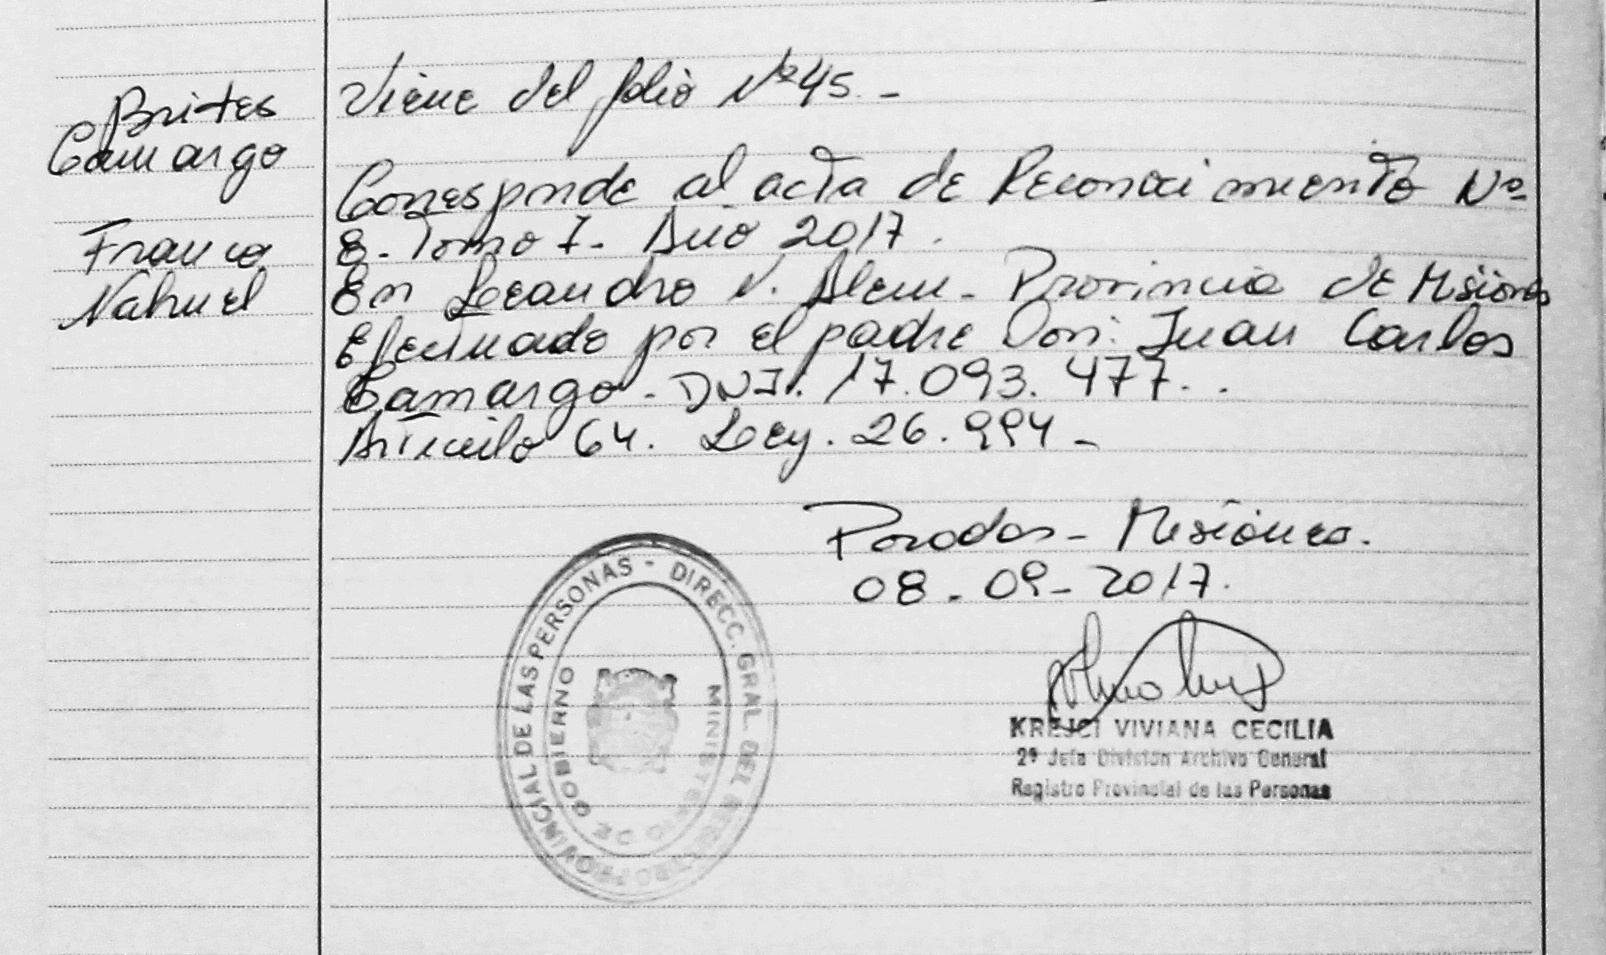 Brites
Camargo
Franco
Nahuel
Viene del folio Nº 45.-
Corresponde al acta de Reconocimiento Nº
8. Tomo I. Año 2017.
En Leandro N. Alem - Provincia de Misiones
Efectuado por el padre Don: Juan Carlos
Camargo - DNI. 17.093.477..
Artículo 64. Ley. 26.994-
Posadas - Misiones.
08-09-2017.
DIRECC. GRAL. DEL REGISTRO PROVINCIAL DE LAS PERSONAS -
MINISTERIO DE GOBIERNO
KREJCI VIVIANA CECILIA
2º Jefa División Archivo General
Registro Provincial de las Personas